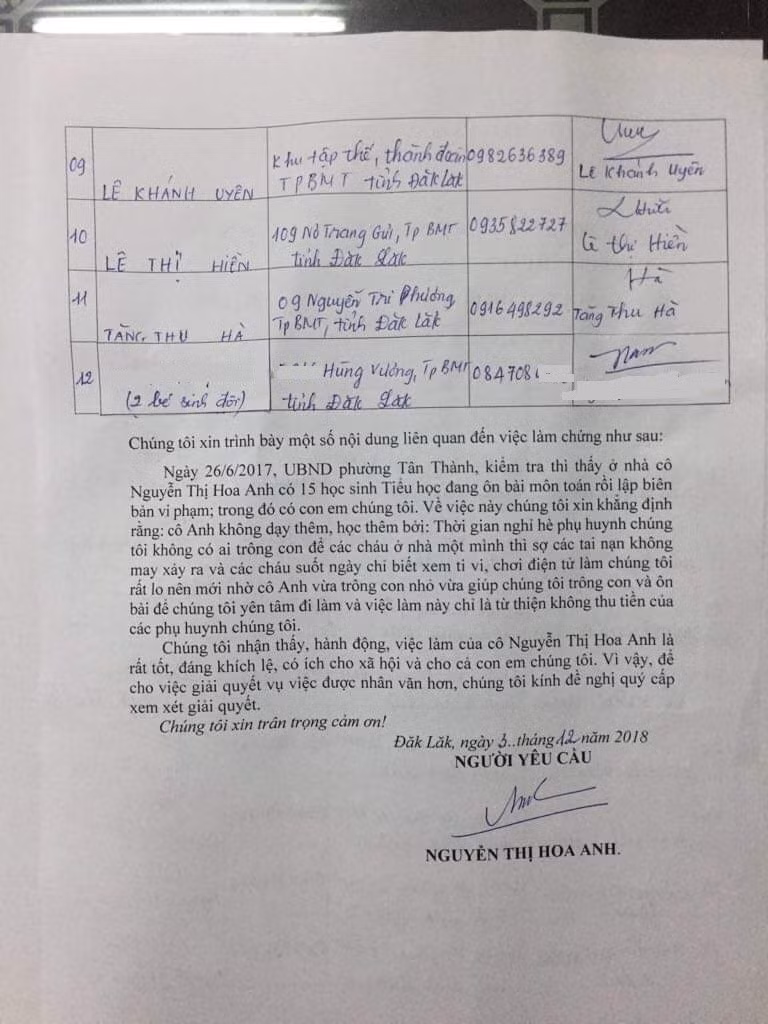 09 LÊ KHÁNH UYÊN Khu tập thể, thành đoàn TPBMT tỉnh Đăk Lăk 0982636389 Lê Khánh Uyên
10 LÊ THỊ HIỀN 109 Nơ Trang Gưi, Tp BMT tỉnh Đăk Lăk 0935822727 Lê Thị Hiền
11 TĂNG THU HÀ 09 Nguyễn Tri Phương, Tp BMT, tỉnh Đăk Lăk 0916498292 Hà Tăng Thu Hà
12 (2 bé sinh đôi) Hùng Vương, Tp BMT tỉnh Đăk Lăk 084708 Nam
Chúng tôi xin trình bày một số nội dung liên quan đến việc làm chứng như sau:
Ngày 26/6/2017, UBND phường Tân Thành, kiểm tra thì thấy ở nhà cô
Nguyễn Thị Hoa Anh có 15 học sinh Tiểu học đang ôn bài môn toán rồi lập biên
bản vi phạm; trong đó có con em chúng tôi. Về việc này chúng tôi xin khẳng định
rằng: cô Anh không dạy thêm, học thêm bởi: Thời gian nghỉ hè phụ huynh chúng
tôi không có ai trông con để các cháu ở nhà một mình thì sợ các tai nạn không
may xảy ra và các cháu suốt ngày chỉ biết xem ti vi, chơi điện tử làm chúng tôi
rất lo nên mới nhờ cô Anh vừa trông con nhỏ vừa giúp chúng tôi trông con và ôn
bài để chúng tôi yên tâm đi làm và việc làm này chỉ là từ thiện không thu tiền của
các phụ huynh chúng tôi.
Chúng tôi nhận thấy, hành động, việc làm của cô Nguyễn Thị Hoa Anh là
rất tốt, đáng khích lệ, có ích cho xã hội và cho cả con em chúng tôi. Vì vậy, để
cho việc giải quyết vụ việc được nhân văn hơn, chúng tôi kính đề nghị quý cấp
xem xét giải quyết.
Chúng tôi xin trân trọng cảm ơn!
Đăk Lăk, ngày 3..tháng 12 năm 2018
NGƯỜI YÊU CẦU
NGUYỄN THỊ HOA ANH.